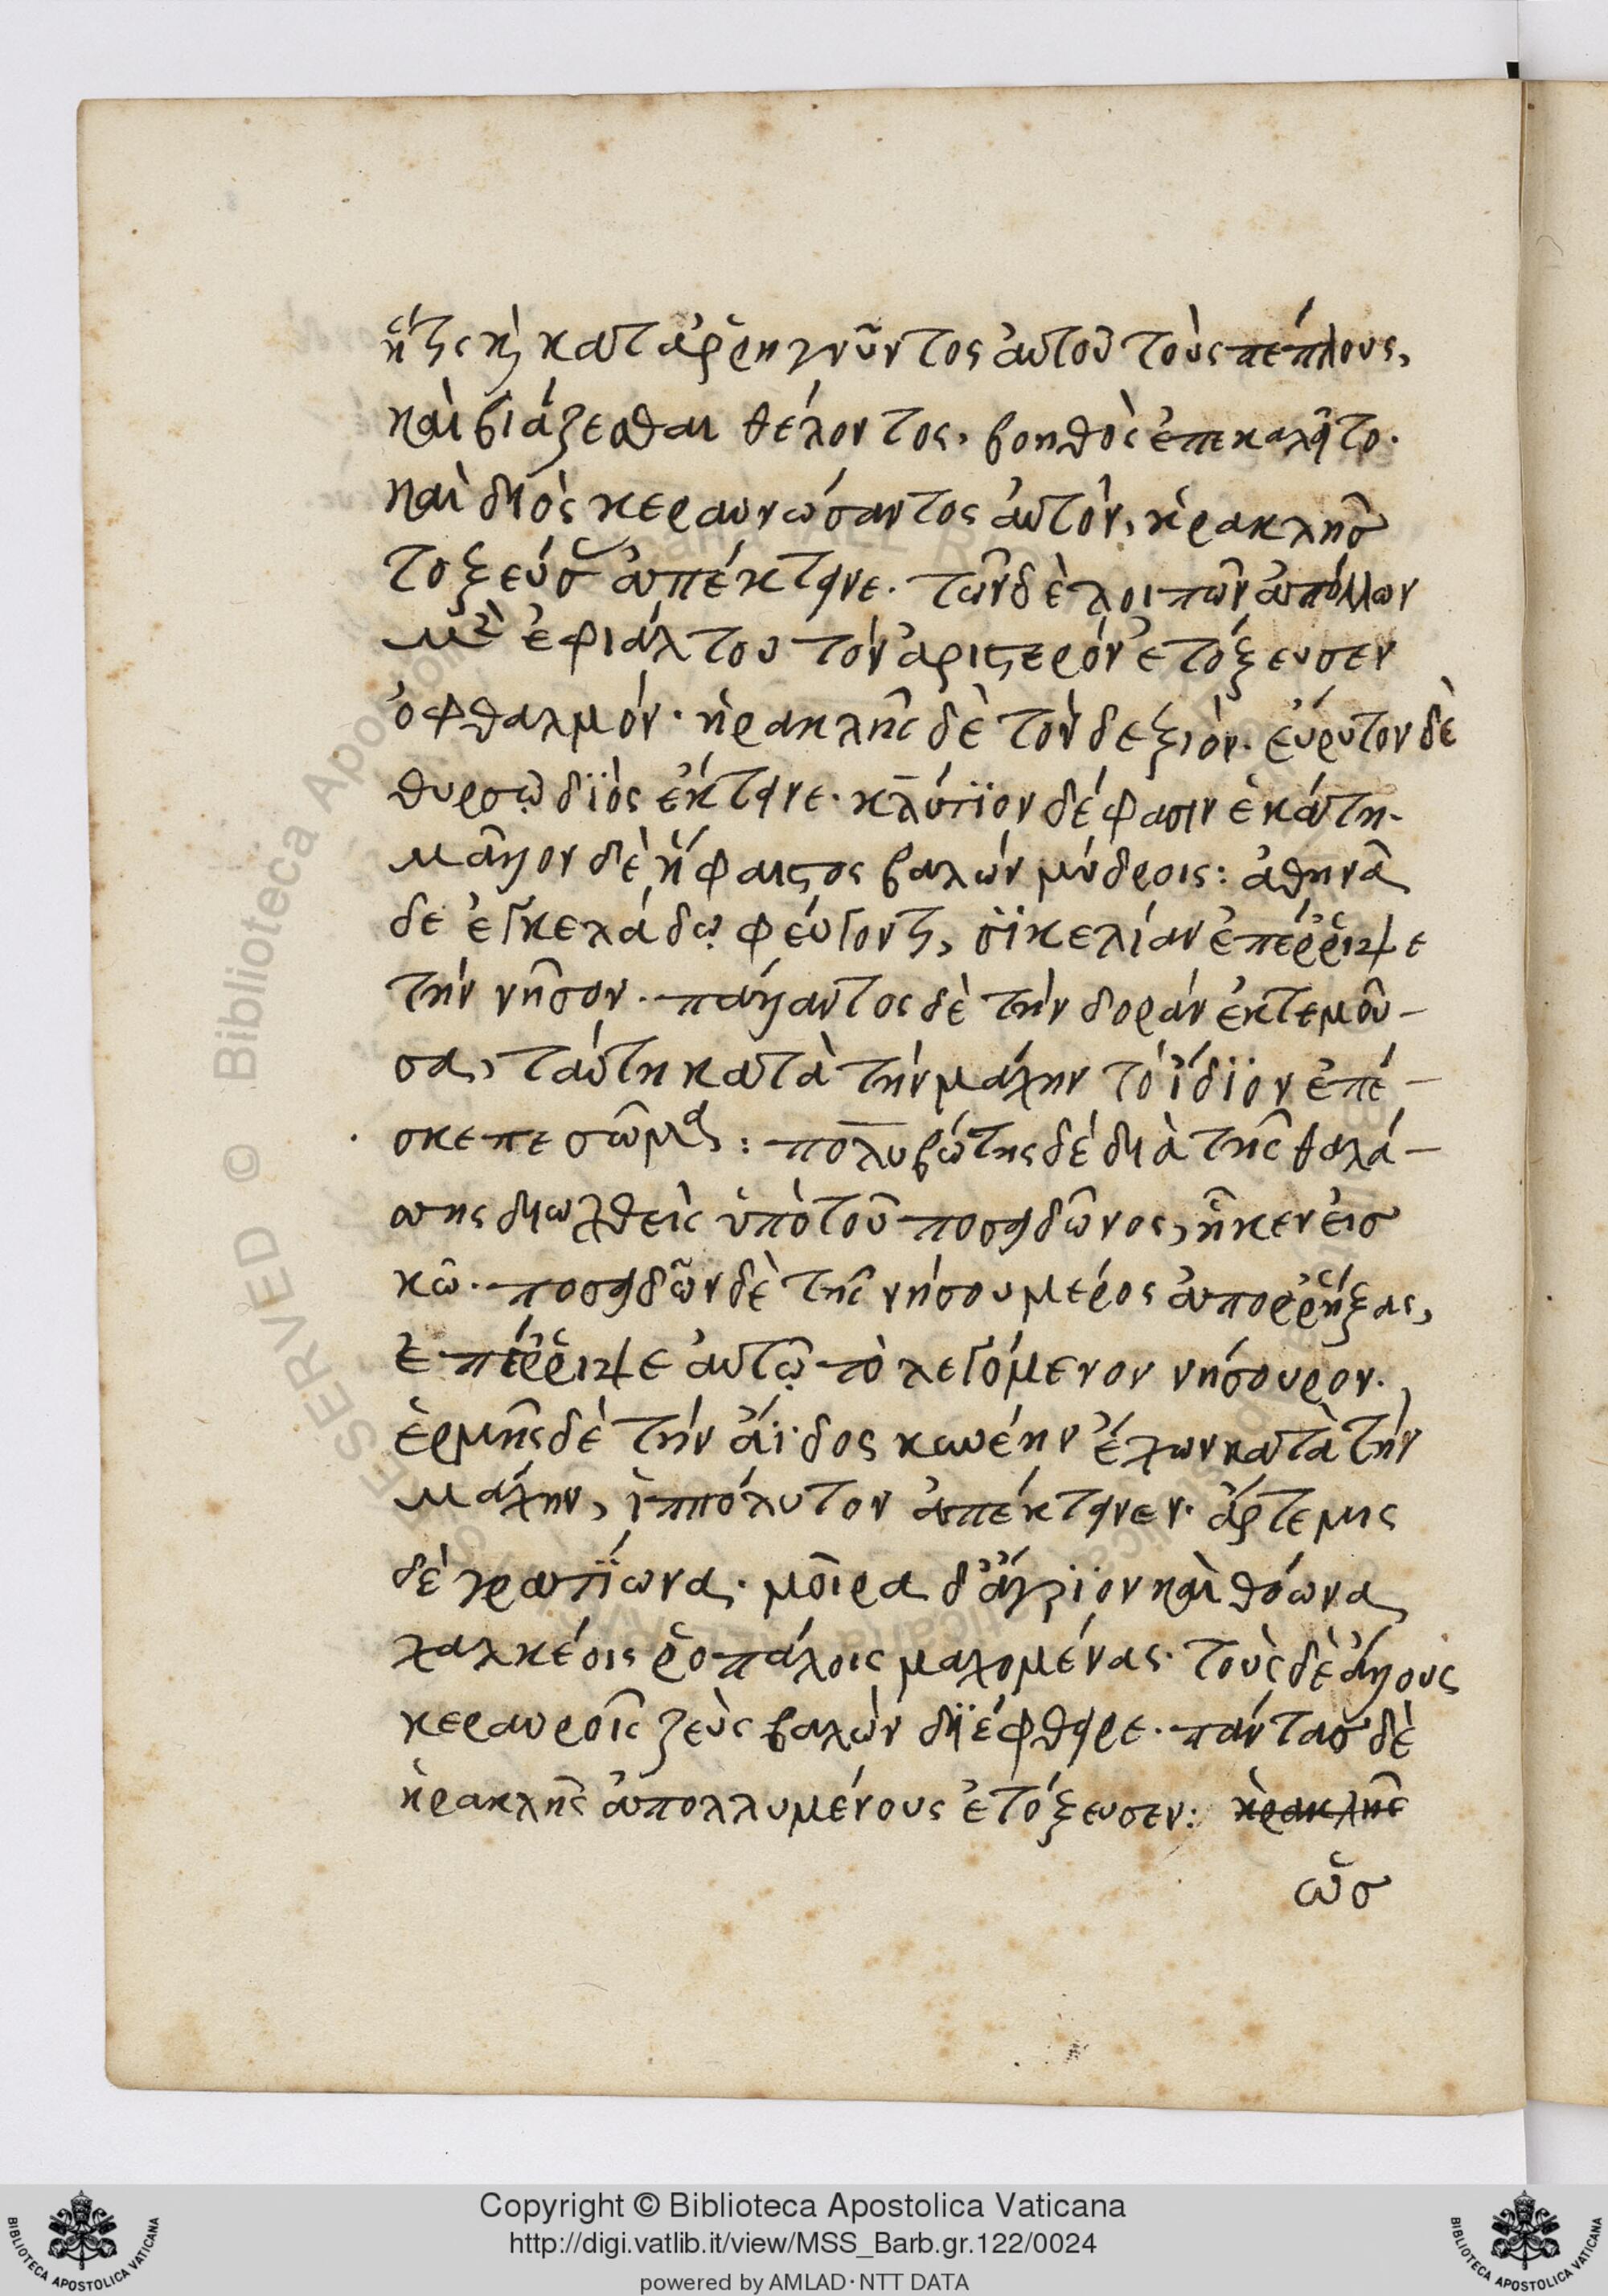 ἥτις καὶ καταῤῥηγνῦντος αὐτοῦ τοὺς πέπλους,
καὶ βιάζεσθαι θέλοντος, βοηθὸς ἐπεκαλεῖτο.
καὶ διὸς κεραυνώσαντος αὐτὸν, ἡρακλῆσ
τοξεύσας ἀπέκτεινε. τῶν δὲ λοιπῶν ἀπόλλων
μὲν ἐφιάλτου τὸν ἀριστερὸν ἐτόξευσεν
ὀφθαλμόν. ἡρακλῆς δὲ τὸν δεξιὸν. εὔρυτον δὲ
θυρσῷ διὸς ἔκτεινε. κλύτϊον δέ φασιν ἑκάτη.
μᾶλλον δὲ ἥφαιστος βαλὼν μύδροις: ἀθηνᾶ
δὲ ἐγκελάδῳ φεύγοντι, σϊκελίαν ἐπέῤῥιψε
τὴν νῆσον. πάλλαντος δὲ τὴν δορὰν ἐκτεμοῦ-
σα, ταύτη κατὰ τὴν μάχην τὸ ἴδϊον ἐπέ-
σκεπε σῶμα: πολυβώτης δὲ διὰ τῆς θαλά-
σσης διωχθεὶς ὑπὸ τοῦ ποσειδῶνος, ἧκεν εἰσ
κῶ. ποσειδῶν δὲ τῆς νήσου μέρος ἀποῤῥήξας,
ἐπέῤῥιψε αὐτῷ τὸ λεγόμενον νήσουρον.
ἑρμῆς δὲ τὴν ἄϊδος κυνέην ἔχων κατὰ τὴν
μάχην, ἱππόλυτον ἀπέκτεινεν. ἄρτεμις
δὲ γρατΐωνα. μοῖρα δ' ἄγριον καὶ θόωνα
χαλκέοις ῥοπάλοις μαχομένας. τοὺς δὲ ἄλλους
κεραυνοῖς ζεὺς βαλὼν διέφθειρε. πάντασ δὲ
ἡρακλῆς ἀπολλυμένους ἐτόξευσεν: ἡρακλῆς
ὡσ
Copyright © Biblioteca Apostolica Vaticana
http://digi.vatlib.it/view/MSS_Barb.gr.122/0024
powered by AMLAD·NTT DATA
BIBLIOTECA APOSTOLICA VATICANA
BIBLIOTECA APOSTOLICA VATICANA